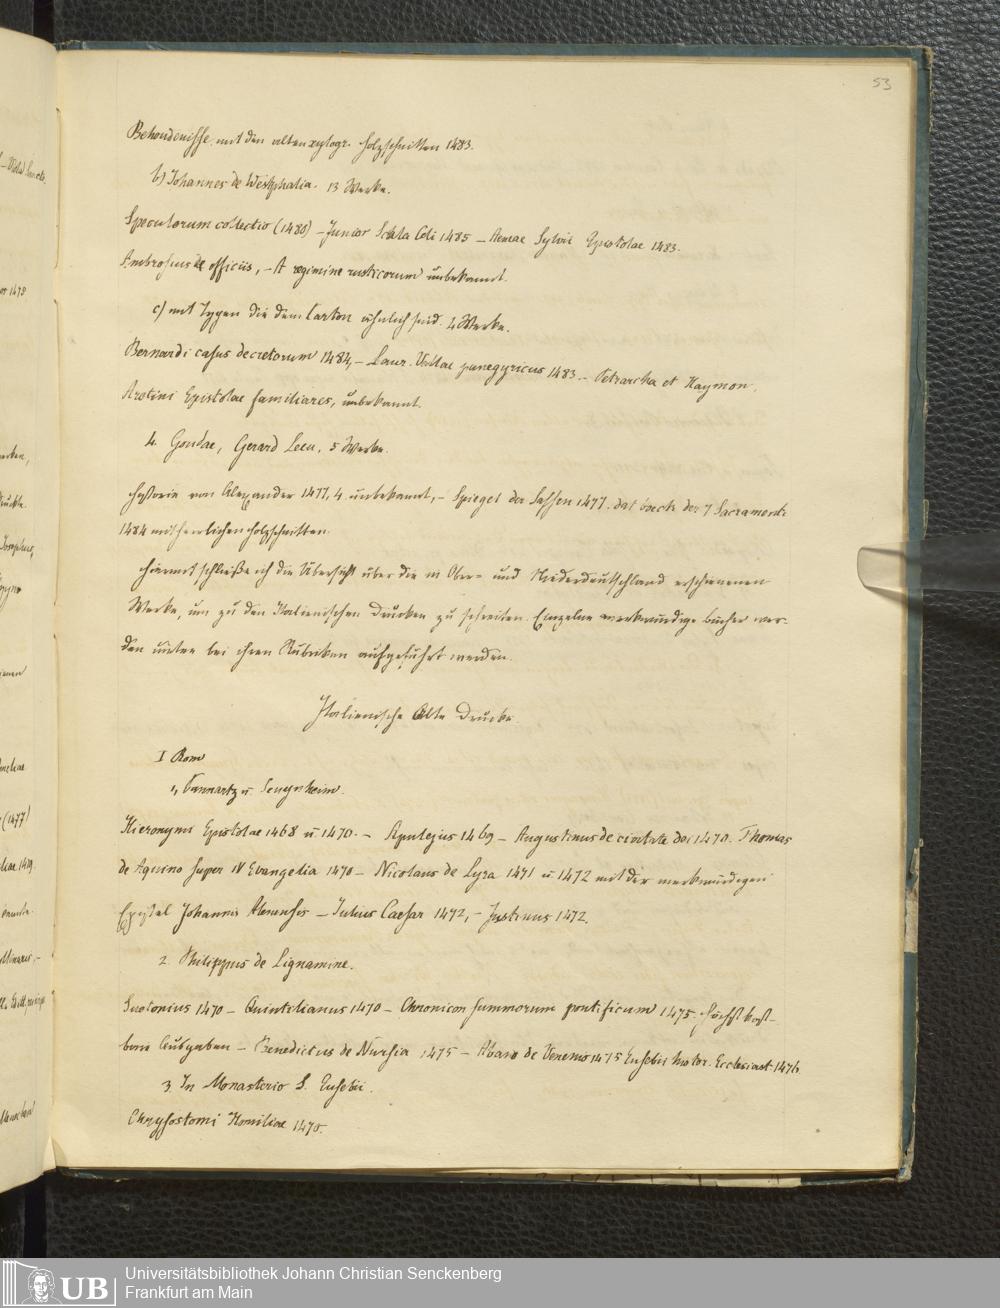 53
Behoudenisse. mit den alten xylogr. Holzschnitten 1483.
b) Johannes de Westphalia. 13 Werke.
Speculorum collectio (1480) – Junior Scala Celi 1485 – Aeneae Sylvii Epistolae 1483.
Ambrosius de officiis, – A regimine rusticorum unbekannt.
c) mit Typen die dem Caxton ähnlich sind. 4 Werke.
Bernardi casus decretorum 1484, – Laur. Vallae panegyricus 1483. – Petrarcha et Haymon.
Aretini Epistolae familiares, unbekannt.
4. Goudae, Gerard Leeu, 5 Werke.
Historie von Alexander 1477, 4. unbekannt, – Spiegel der Sassen 1477. dat boeck der 7 Sacramente
1484 mit herrlichen Holzschnitten.
Hiermit schließe ich die Übersicht über die in Ober- und Niederdeutschland erschienenen
Werke, um zu den Italienischen Drucken zu schreiten. Einzelne merkwürdige Bücher wer-
den unten bei ihren Rubriken aufgeführt werden.
Italienische Alte Drucke.
I Rom
1, Pannartz u Sweynheim.
Hieronymi Epistolae 1468 u 1470. – Apulejus 1469 – Augustinus de civitate dei 1470. Thomas
de Aquino super IV Evangelia 1470 – Nicolaus de Lyra 1471 u 1472 mit der merkwürdigen
Epistel Johannis Aleriensis – Julius Caesar 1472, – Justinus 1472.
2. Philippus de Lignamine.
Suetonius 1470 – Quintilianus 1470 – Chronicon summorum pontificum 1475. höchst kost-
bare Ausgaben – Benedictus de Nursia 1475 – Abano de Veneno 1475 Eusebii histor. Ecclesiast. 1476.
3. In Monasterio S. Eusebii.
Chrysostomi Homiliae 1470.
UB
Universitätsbibliothek Johann Christian Senckenberg
Frankfurt am Main